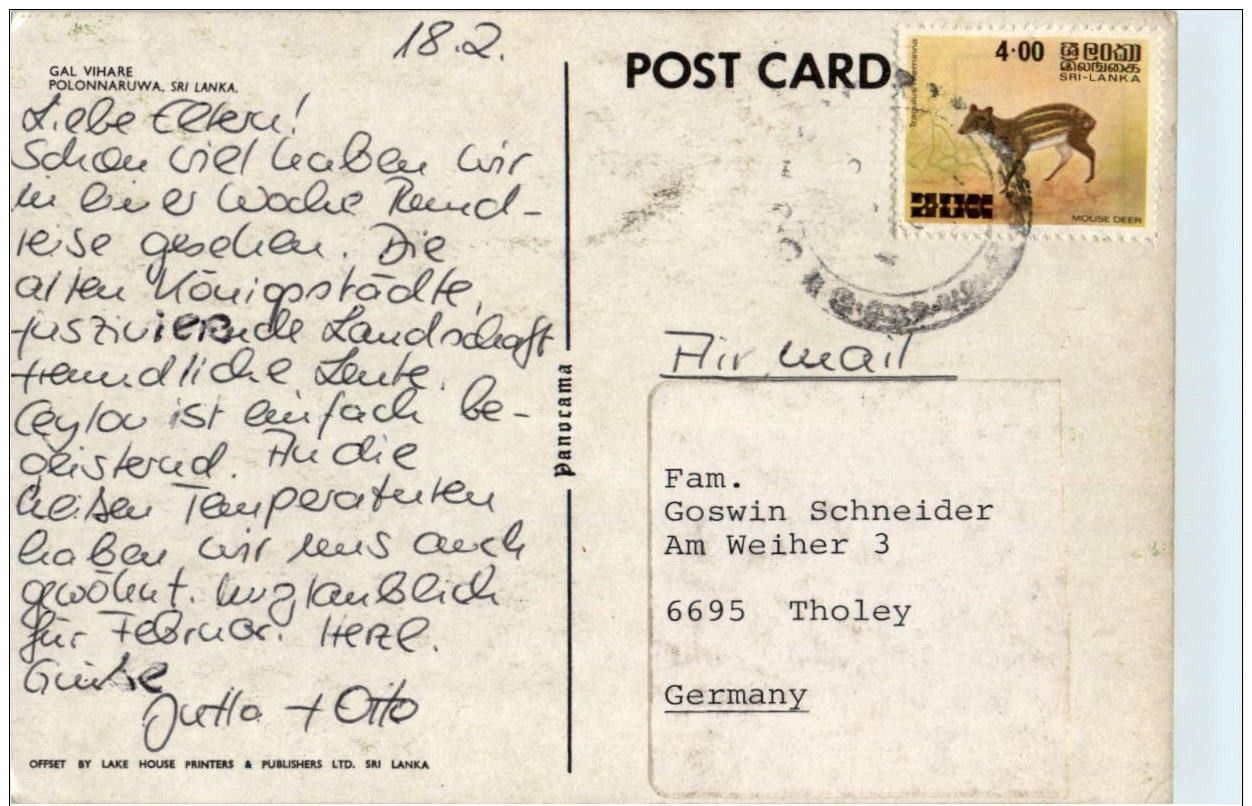 18.2.
GAL VIHARE
POLONNARUWA, SRI LANKA.
Liebe Eltern!
Schon viel haben wir
in einer Woche Rund-
reise gesehen. Die
alten Königsstädte,
faszinierende Landschaft
freundliche Leute.
Ceylon ist einfach be-
geisternd. An die
heißen Temperaturen
haben wir uns auch
gewöhnt. Unglaublich
für Februar. Herzl.
Grüße
Jutta + Otto
OFFSET BY LAKE HOUSE PRINTERS & PUBLISHERS LTD. SRI LANKA
Panorama
POST CARD
4·00
ශ්‍රී ලංකා
இலங்கை
SRI-LANKA
MOUSE DEER
Air mail
Fam.
Goswin Schneider
Am Weiher 3
6695 Tholey
Germany